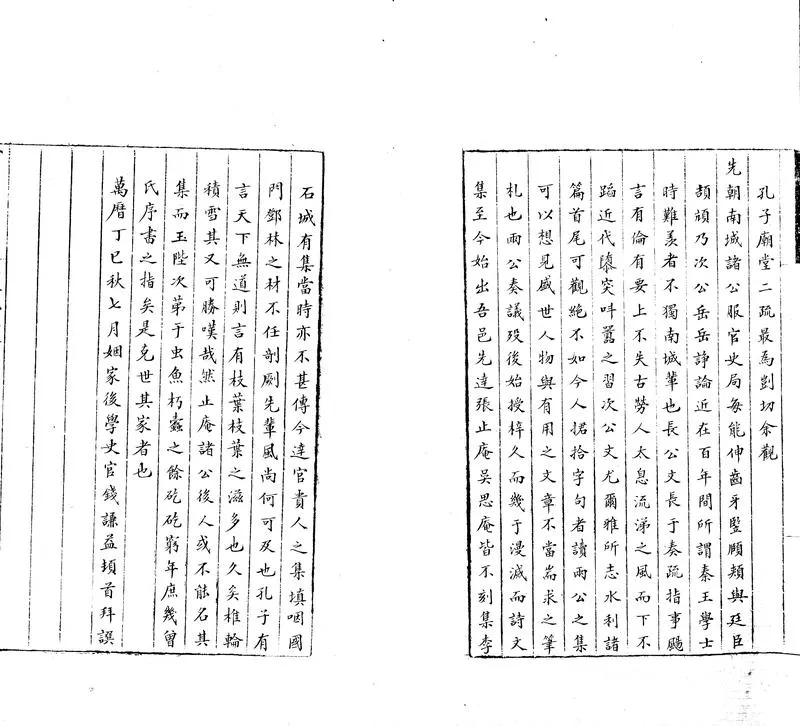 孔子廟堂二疏最為剴切余觀
先朝南城諸公服官史局每能伸齒牙豎頤頰與廷臣
頡頏乃次公岳岳諍論近在百年間所謂秦王學士
時難羨者不獨南城輩也長公文長于奏疏指事颺
言有倫有要上不失古勞人太息流涕之風而下不
蹈近代隳突叫囂之習次公文尤爾雅所志水利諸
篇首尾可觀絶不如今人捃拾字句者讀兩公之集
可以想見盛世人物與有用之文章不當耑求之筆
札也兩公奏議歿後始授梓久而幾于漫滅而詩文
集至今始出吾邑先達張止庵吳思庵皆不刻集李
石城有集當時亦不甚傳今達官貴人之集填咽國
門鄧林之材不任剞劂先輩風尚何可及也孔子有
言天下無道則言有枝葉枝葉之滋多也久矣椎輪
積雪其又可勝嘆哉然止庵諸公後人或不能名其
集而玉陛次第于虫魚朽蠹之餘矻矻窮年庶幾曾
氏序書之指矣是克世其家者也
萬曆丁巳秋七月姻家後學史官錢謙益頓首拜譔